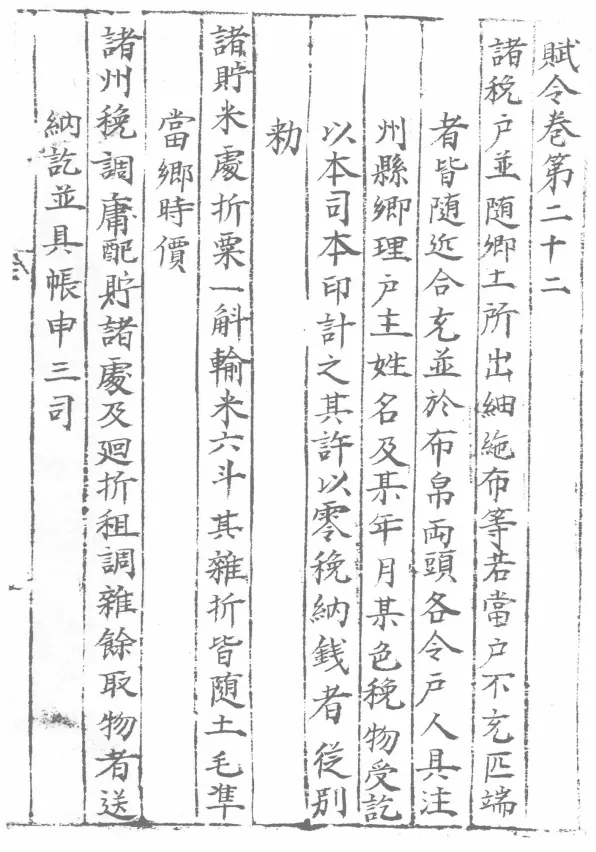 賦令卷第二十二
諸稅户並随鄉土所出紬絁布等若當户不充匹端
者皆随近合充並於布帛兩頭各令户人具注
州縣鄉理户主姓名及某年月某色稅物受訖
以本司本印計之其許以零稅納錢者從别
勑
諸貯米處折粟一斛輸米六斗其雜折皆随土毛準
當鄉時價
諸州稅調庸配貯諸處及廻折租調雜餘取物者送
納訖並具帳申三司